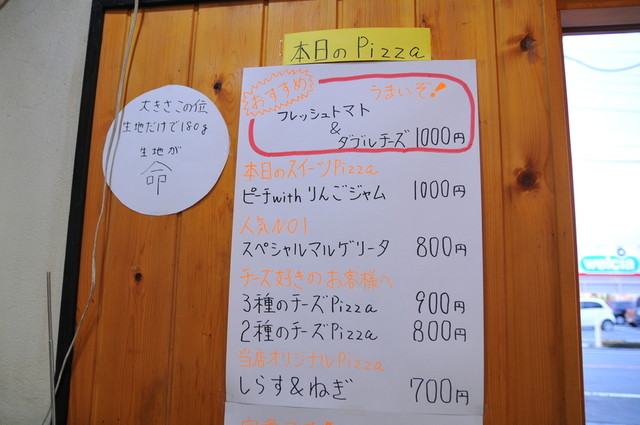 本日のPizza
おすすめ
うまいぞ!
フレッシュトマト
&
ダブルチーズ 1000円
本日のスイーツPizza
ピーチwithりんごジャム 1000円
人気NO1
スペシャルマルゲリータ 800円
チーズ好きのお客様へ
3種のチーズPizza 900円
2種のチーズPizza 800円
当店オリジナルPizza
しらす&ねぎ 700円
大きさこの位
生地だけで180g
生地が
命
welcia